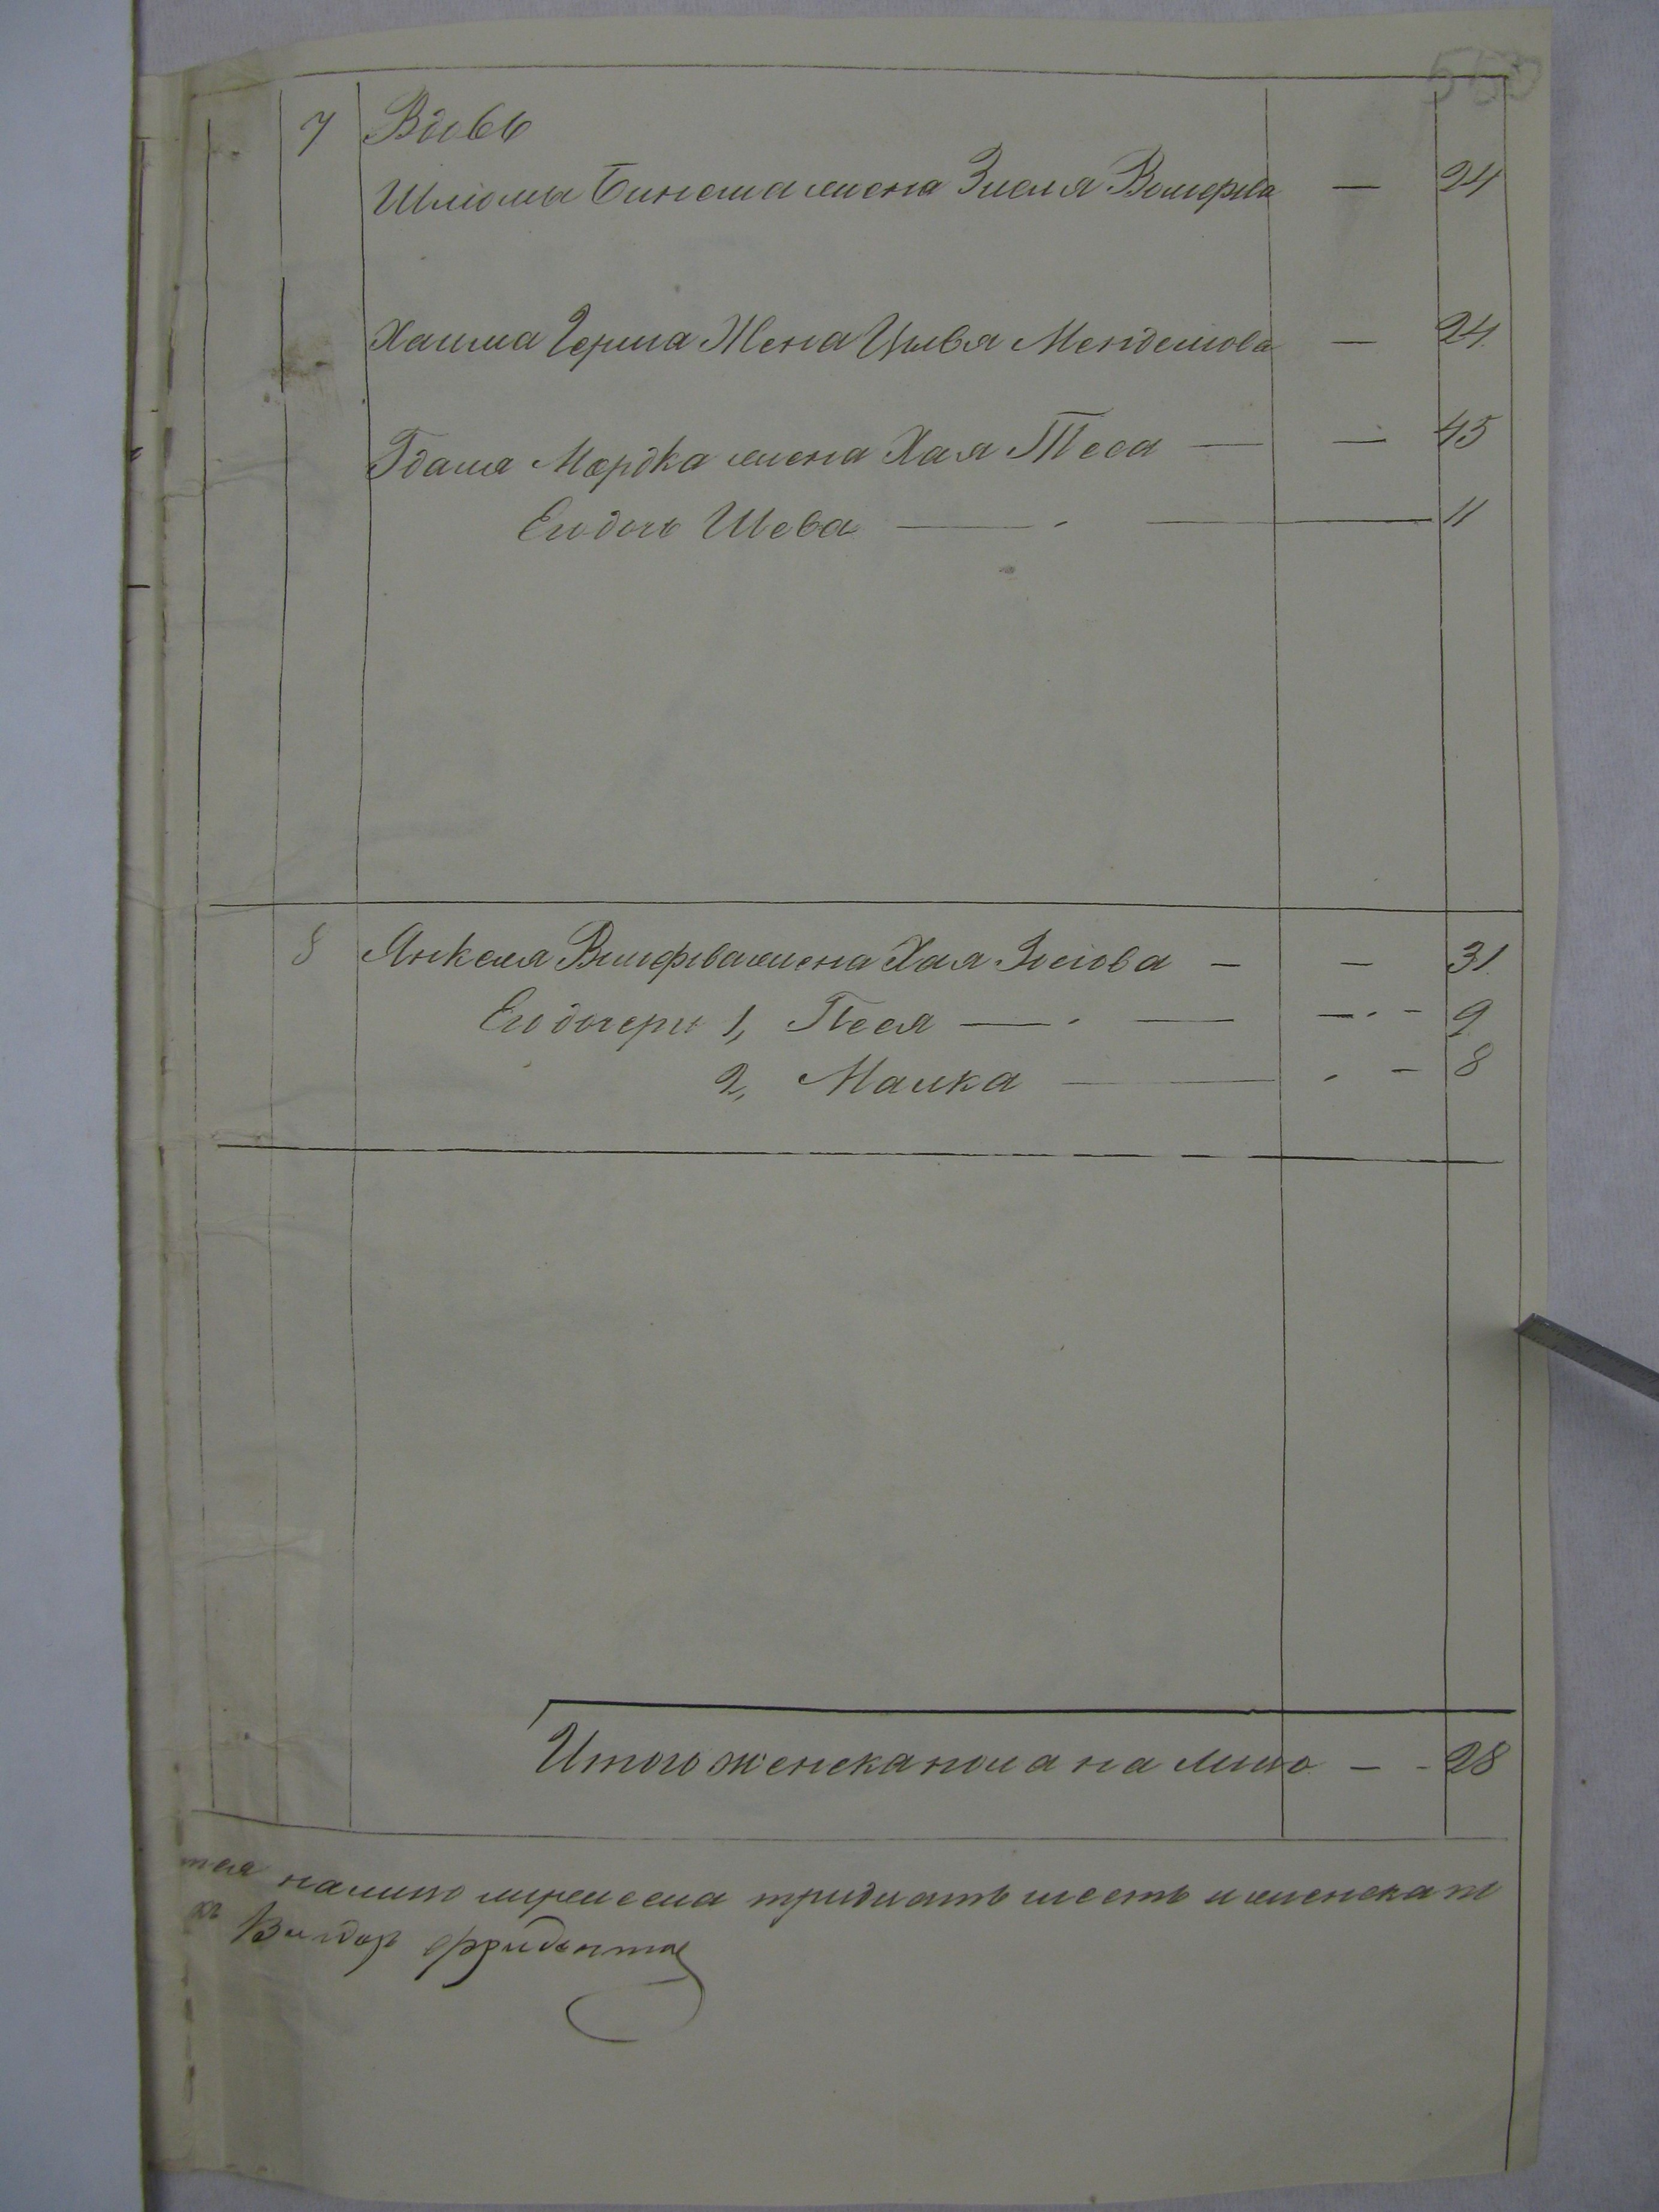 553
7 Вдовы
Шлiомы Бинема жена Зисля Вольфова — 24
Хаима Герша Жена Цывя Менделiова — 24
Гдаля Мордка жена Хая Песа — — 45
Его дочь Шева — — 11
8 Янкеля Вольфова жена Хая Зосiова — — 31
Его дочери 1, Песя — — — 9
2, Малка — — 8
Итого женска пола на лицо — - 28
тся на лицо мужеска тридцать шесть и женска п